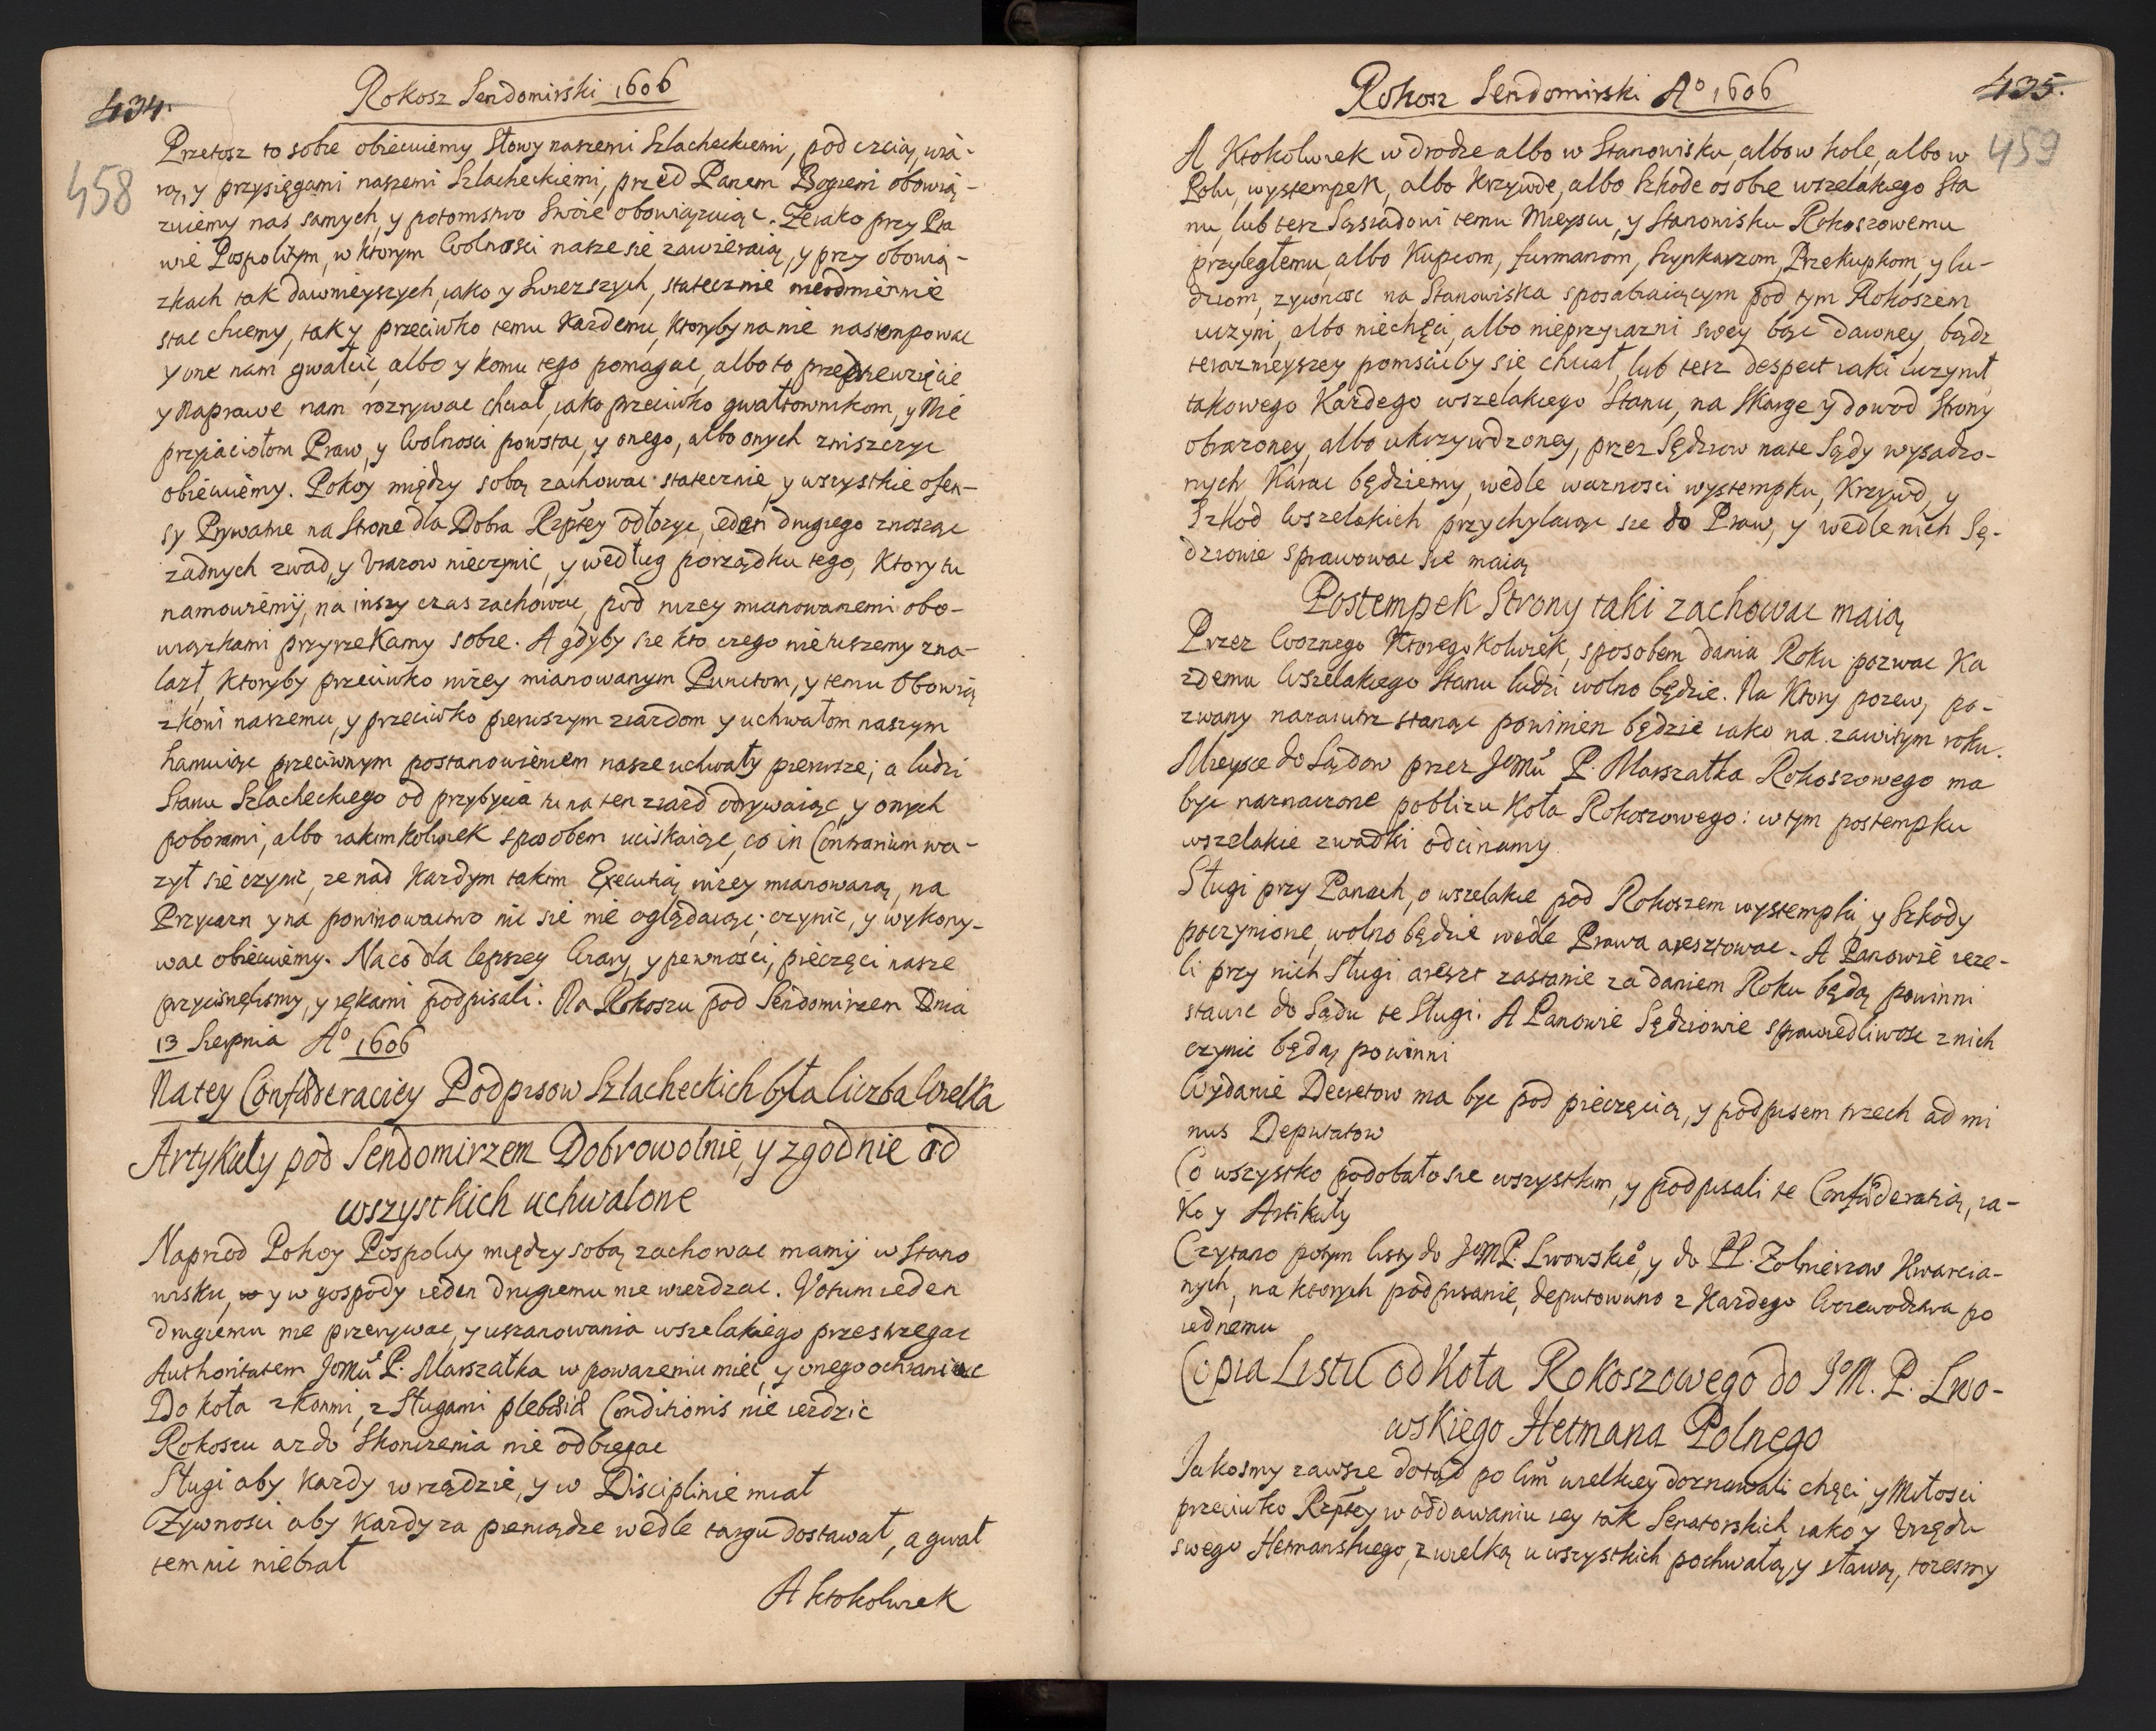 434.
Rokosz Sendomirski 1606
458
Przetosz to sobie obiecuiemy Słowy naszemi Szlacheckiemi, pod czcią, wia-
rą, y przysięgami naszemi Szlacheckiemi, przed Panem Bogiem obowią-
zuiemy nas samych, y potomstwo Swoie obowiązuiąc. Że iako przy Pra
wie Pospolitym, w ktorym Wolnosci nasze się zawieraią, y przy obowią-
zkach tak dawnieyszych, iako y swiezszych, statecznie nieodmiennie
stac chcemy, tak y przeciwko temu Kazdemu, Ktoryby na nie nastempowac
y one nam gwałcić, albo y komu tego pomagac, albo to przedsiewzięcie
y Naprawe nam rozrywac chciał, iako przeciwko gwałtownikom, y Nie
przyiaciołom Praw, y Wolnosci powstac, y onego, albo onych zniszczyc
obiecuiemy. Pokoy między sobą zachowac statecznie, y wszystkie ofen-
sy Prywatne na Strone dla Dobra Rzptey odłozyc, ieden drugiego znosząc
zadnych zwad, y Urazow nieczynic, y według porządku tego, Ktory tu
namowiemy, na inszy czas zachowac, pod nizey mianowanemi obo-
wiązkami przyrzekamy sobie. A gdyby sie kto czego nietuszemy zna-
lazł, Ktoryby przeciwko nizey mianowanym Punctom, y temu Obowią
zkowi naszemu, y przeciwko pierwszym ziazdom y uchwałom naszym
hamuiąc przeciwnym postanowieniem nasze uchwały pierwsze; a ludzi
Stanu Szlacheckiego od przybycia tu na ten ziazd odrywaiąc y onych
poborami, albo iakimkolwiek sposobem uciskaiąc, co in Contrarium wa-
zył się czynic, ze nad Kazdym takim Executią nizey mianowaną, na
Przyiazn y na powinowactwo nic się nie oglądaiąc, czynic, y wykony-
wac obiecuiemy. Na co dla lepszey Wiary, y pewnosci, pieczęci nasze
przycisnęlismy, y rękami podpisali. Na Rokoszu pod Sendomirzem Dnia
13 Sierpnia Aº 1606
Na tey Confœderaciey Podpisow Szlacheckich była liczba Wielka
Artykuły pod Sendomirzem Dobrowolnie, y zgodnie od
wszystkich uchwalone
Naprzod Pokoy Pospolity między sobą zachowac mamy w Stano
wisku, y w gospody ieden drugiemu nie wierdzac. Votum ieden
drugiemu nie przerywac, y uszanowania wszelakiego przestrzegac
Authoritatem Jomci P. Marszałka w powazeniu miec, y onego ochraniac
Do koła z Konmi, z Sługami plebeiæ Conditionis nie iezdzic
Rokoszu az do Skonczenia nie odbiegac
Sługi aby Kazdy w rządzie, y w Disciplinie miał
Zywnosci aby Kazdy za pieniądze wedle targu dostawał, a gwał
tem nic niebrał
A ktokolwiek
Rokosz Sendomirski Aº 1606
435.
459
A Ktokolwiek w drodze albo w Stanowisku, albo w kole, albo w
Polu, wystempek, albo Krzywde, albo Szkode osobie wszelakiego Sta
nu, lub tesz Sąsiadowi temu Mieyscu, y Stanowisku Rokoszowemu
przyległemu, albo Kupcom, furmanom, Szynkarzom, Przekupkom, y lu-
dziom, zywnosc na Stanowiska sposabiaiącym pod tym Rokoszem
uczyni, albo niechęci, albo nieprzyiazni swey bąc dawney, bądz
teraznieyszey pomsciłby sie chciał, lub tesz despect iaki uczynił,
takowego Kazdego wszelakiego Stanu, na Skarge y dowod Strony
obrazoney, albo ukrzywdzoney, przez Sędziow na te Sądy wysadzo-
nych Karac będziemy, wedle waznosci wystempku, Krzywd, y
Szkod wszelakich przychylaiąc sie do Praw, y wedle nich Sę-
dziowie sprawowac sie maią
Postempek Strony taki zachowac maią
Przez Woznego Ktoregokolwiek, sposobem dania Roku pozwac Ka
zdemu Wszelakiego Stanu ludzi wolno będzie. Na Ktory pozew, po-
zwany nazaiutrz stanąc powinien będzie iako na zawitym roku.
Mieysce do Sądow przez Jomci P. Marszałka Rokoszowego ma
byc naznaczone poblizu Koła Rokoszowego: w tym postempku
wszelakie zwadki odcinamy.
Sługi przy Panach, o wszelakie pod Rokoszem wystempki, y Szkody
poczynione, wolno będzie wedle Prawa aresztowac. A Panowie ieze-
li przy nich Sługi areszt zastanie za daniem Roku będą powinni
stawic do Sądu te Sługi. A Panowie Sędziowie sprawiedliwosc z nich
czynic będą powinni
Wydanie Decretow ma byc pod pieczęcią, y podpisem trzech ad mi
nus Deputatow
Co wszystko podobało sie wszystkim, y podpisali te Confœderatią, ia-
ko y Artikuły
Czytano potym listy do JoMP. Lwowskiego, y do PP. Zołnierzow Kwarcia-
nych, na ktorych podpisanie, deputowano z Kazdego Woiewodztwa po
iednemu
Copia Listu od Koła Rokoszowego do JoM. P. Lwo-
wskiego Hetmana Polnego
Jakosmy zawsze dotąd po Wmci wielkiey doznawali chęci, y Miłosci
przeciwko Rzptey w oddawaniu iey tak Senatorskich iako y Urzędu
swego Hetmanskiego, z wielką u wszystkich pochwałą, y sławą, tozesmy